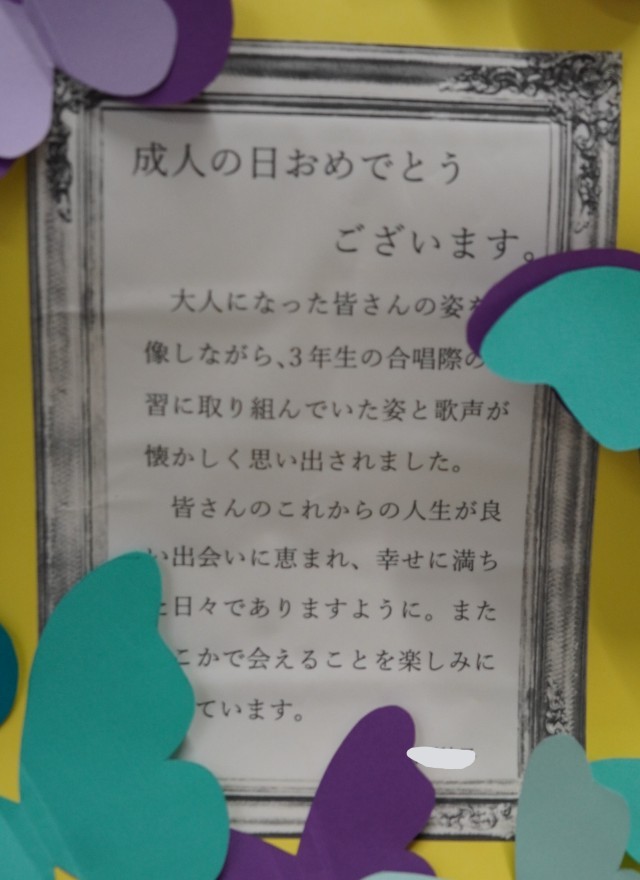 成人の日おめでとう
ございます。
大人になった皆さんの姿を
像しながら、3年生の合唱際の
習に取り組んでいた姿と歌声が
懐かしく思い出されました。
皆さんのこれからの人生が良
い出会いに恵まれ、幸せに満ち
た日々でありますように。また
こかで会えることを楽しみに
ています。